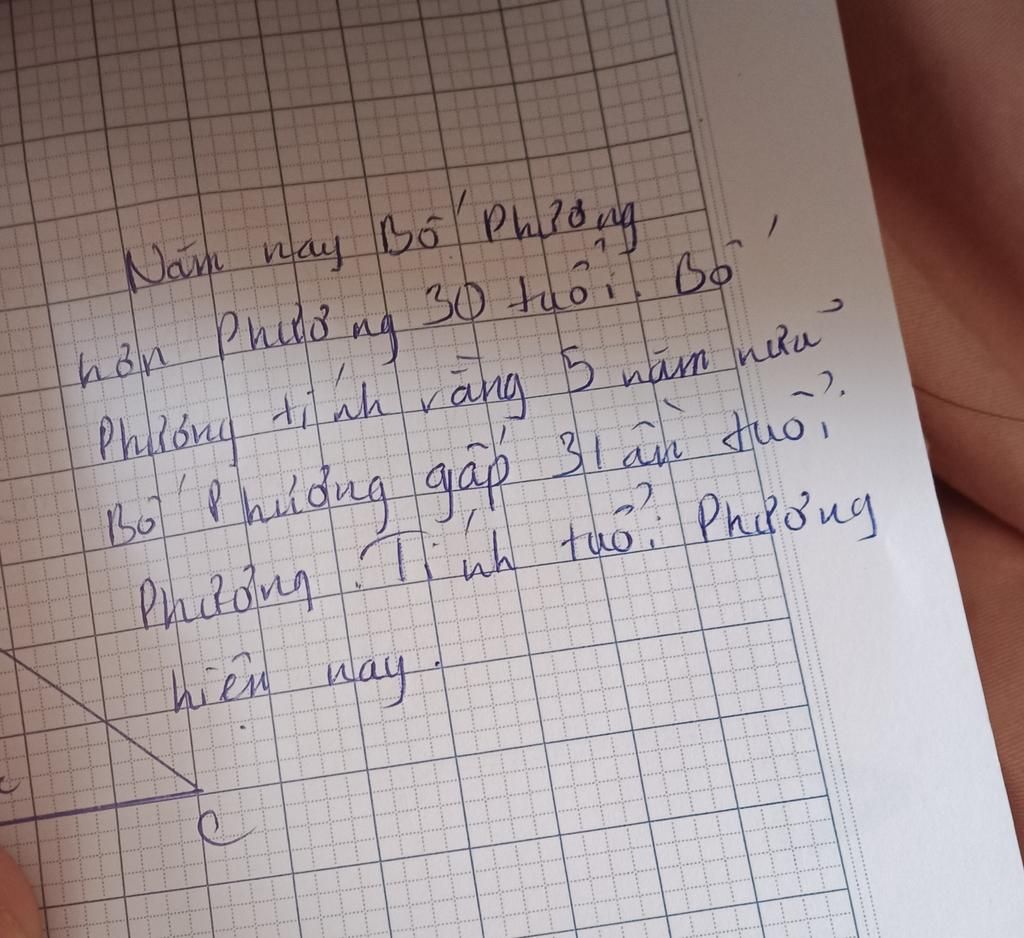 Năm nay Bố Phương
hơn Phương 30 tuổi. Bố
Phương tính rằng 5 năm nữa
Bố Phương gấp 3 lần tuổi
Phương. Tính tuổi Phương
hiện nay.
C